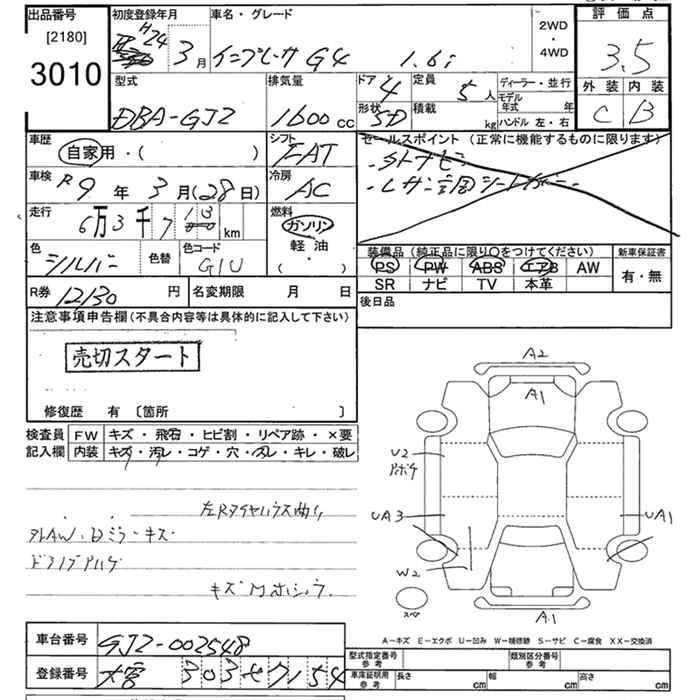 出品番号 初度登録年月 車名・グレード 2WD・4WD 評価点
[2180] H24 3月 インプレッサG4 1.6i 3.5
3010
外装 内装
C B
型式 排気量 ドア 4 定員 5人 ディーラー・並行
DBA-GJ2 1600cc 形状 5D 積載 kg モデル年式 年
ハンドル 左・右
車歴 シフト セールスポイント (正常に機能するものに限ります)
自家用・( ) FAT
車検 冷房
R9年3月(28日) AC
走行 燃料
6万3千7 13 km ガソリン
軽油・( )
色 シルバー 色替 色コード G1U
装備品 (純正品に限り○をつけてください) 新車保証書
PS PW ABS エアB AW 有・無
SR ナビ TV 本革
R券 12130円 名変期限 月 日 後日品
注意事項申告欄(不具合内容等は具体的に記入して下さい)
売切スタート
修復歴 有 〔箇所 〕
検査員 FW キズ・飛石・ヒビ割・リペア跡・×要
記入欄 内装 キズ・汚レ・コゲ・穴・スレ・キレ・破レ
左Rタイヤハウス曲り
ミラーキズ
A2
A1
U2
UA3
UA1
W2
スペ
A1
A-キズ E-エクボ U-凹み W-補修跡 S-サビ C-腐食 XX-交換済
車台番号 GJ2-002548
登録番号 大宮 303 セ 7154
型式指定番号 参考 類別区分番号 参考
車庫証明用 参考 長さ cm 幅 cm 高さ cm